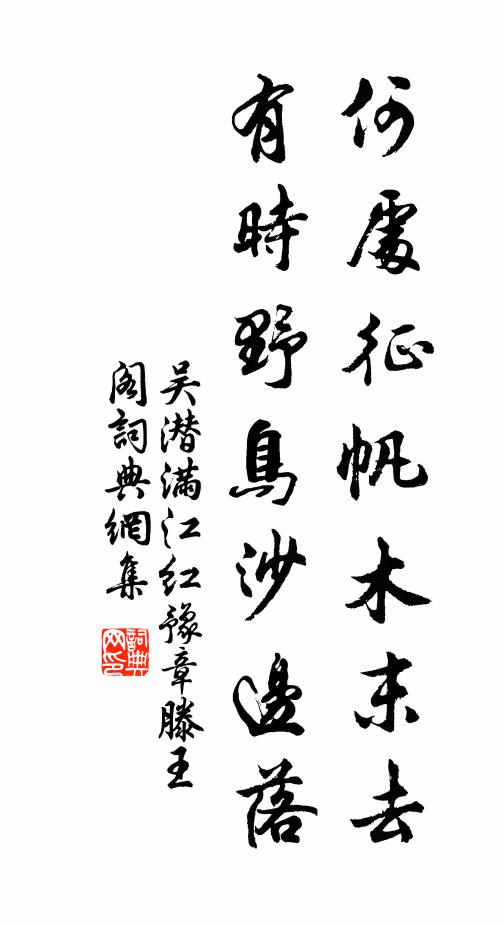 何處征帆木末去
有時野鳥沙邊落
吴潛滿江红豫章滕王
阁詞典網集
詞典网印